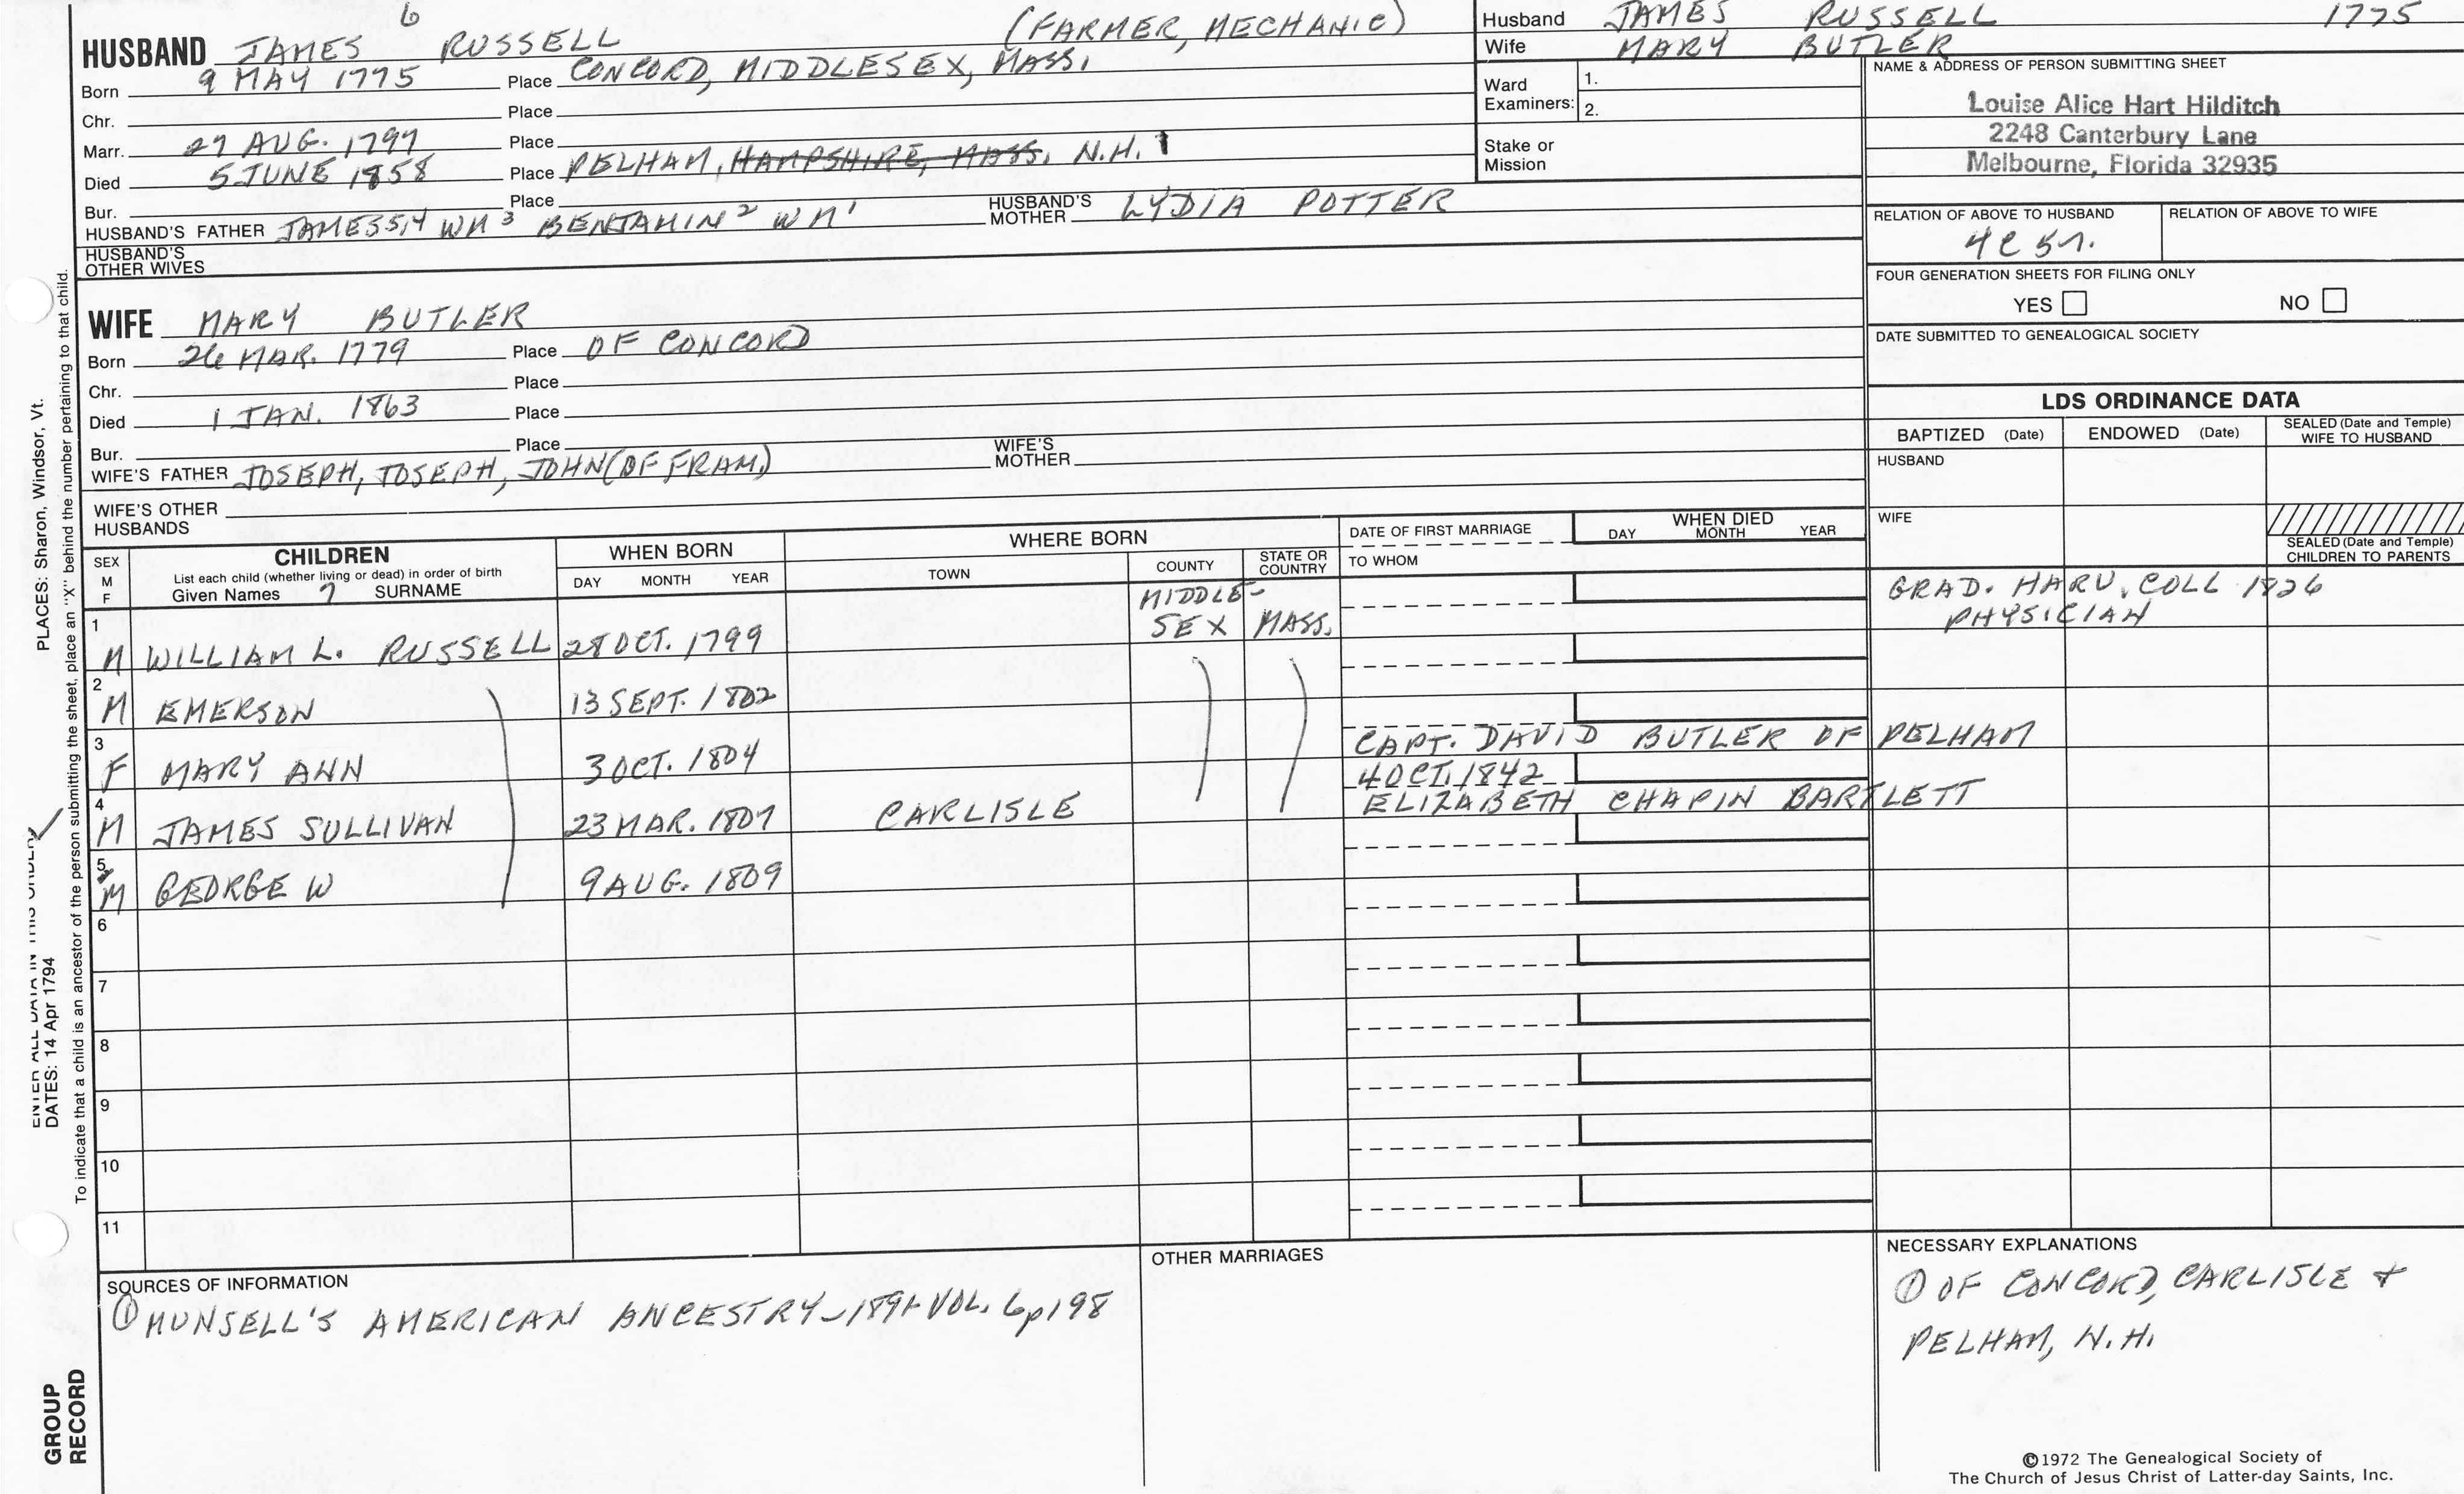 6
HUSBAND JAMES RUSSELL (FARMER, MECHANIC)
Born 9 MAY 1775 Place CONCORD, MIDDLESEX, MASS.
Chr. Place
Marr. 27 AUG. 1797 Place
Died 5 JUNE 1858 Place PELHAM, HAMPSHIRE, MASS. N.H. 1
Bur. Place
HUSBAND'S FATHER JAMES5,4 WM3 BENJAMIN2 WM1 HUSBAND'S MOTHER LYDIA POTTER
HUSBAND'S OTHER WIVES
WIFE MARY BUTLER
Born 26 MAR. 1779 Place OF CONCORD
Chr. Place
Died 1 JAN. 1863 Place
Bur. Place
WIFE'S FATHER JOSEPH, JOSEPH, JOHN (OF FRAM.) WIFE'S MOTHER
WIFE'S OTHER HUSBANDS
Husband JAMES RUSSELL 1775
Wife MARY BUTLER
Ward Examiners: 1.
2.
Stake or Mission
NAME & ADDRESS OF PERSON SUBMITTING SHEET
Louise Alice Hart Hilditch
2248 Canterbury Lane
Melbourne, Florida 32935
RELATION OF ABOVE TO HUSBAND RELATION OF ABOVE TO WIFE
4C 5r.
FOUR GENERATION SHEETS FOR FILING ONLY
YES NO
DATE SUBMITTED TO GENEALOGICAL SOCIETY
LDS ORDINANCE DATA
BAPTIZED (Date) ENDOWED (Date) SEALED (Date and Temple) WIFE TO HUSBAND
HUSBAND
WIFE
SEALED (Date and Temple) CHILDREN TO PARENTS
SEX M F
CHILDREN
List each child (whether living or dead) in order of birth
Given Names 7 SURNAME
WHEN BORN
DAY MONTH YEAR
WHERE BORN
TOWN COUNTY STATE OR COUNTRY
DATE OF FIRST MARRIAGE
TO WHOM
WHEN DIED
DAY MONTH YEAR
1 M WILLIAM L. RUSSELL 28 OCT. 1799 MIDDLE-SEX MASS. GRAD. HARV. COLL 1826
PHYSICIAN
2 M EMERSON 13 SEPT. 1802
3 F MARY ANN 3 OCT. 1804 CAPT. DAVID BUTLER OF PELHAM
4 M JAMES SULLIVAN 23 MAR. 1807 CARLISLE 4 OCT. 1842
ELIZABETH CHAPIN BARTLETT
5 M GEORGE W 9 AUG. 1809
6
7
8
9
10
11
SOURCES OF INFORMATION
① MUNSELL'S AMERICAN ANCESTRY - VOL. 6 p 198
OTHER MARRIAGES
NECESSARY EXPLANATIONS
① OF CONCORD, CARLISLE +
PELHAM, N.H.
©1972 The Genealogical Society of
The Church of Jesus Christ of Latter-day Saints, Inc.
PLACES: Sharon, Windsor, Vt.
ENTER ALL DATA IN THIS ORDER
DATES: 14 Apr 1794
To indicate that a child is an ancestor of the person submitting the sheet, place an "X" behind the number pertaining to that child.
GROUP
RECORD